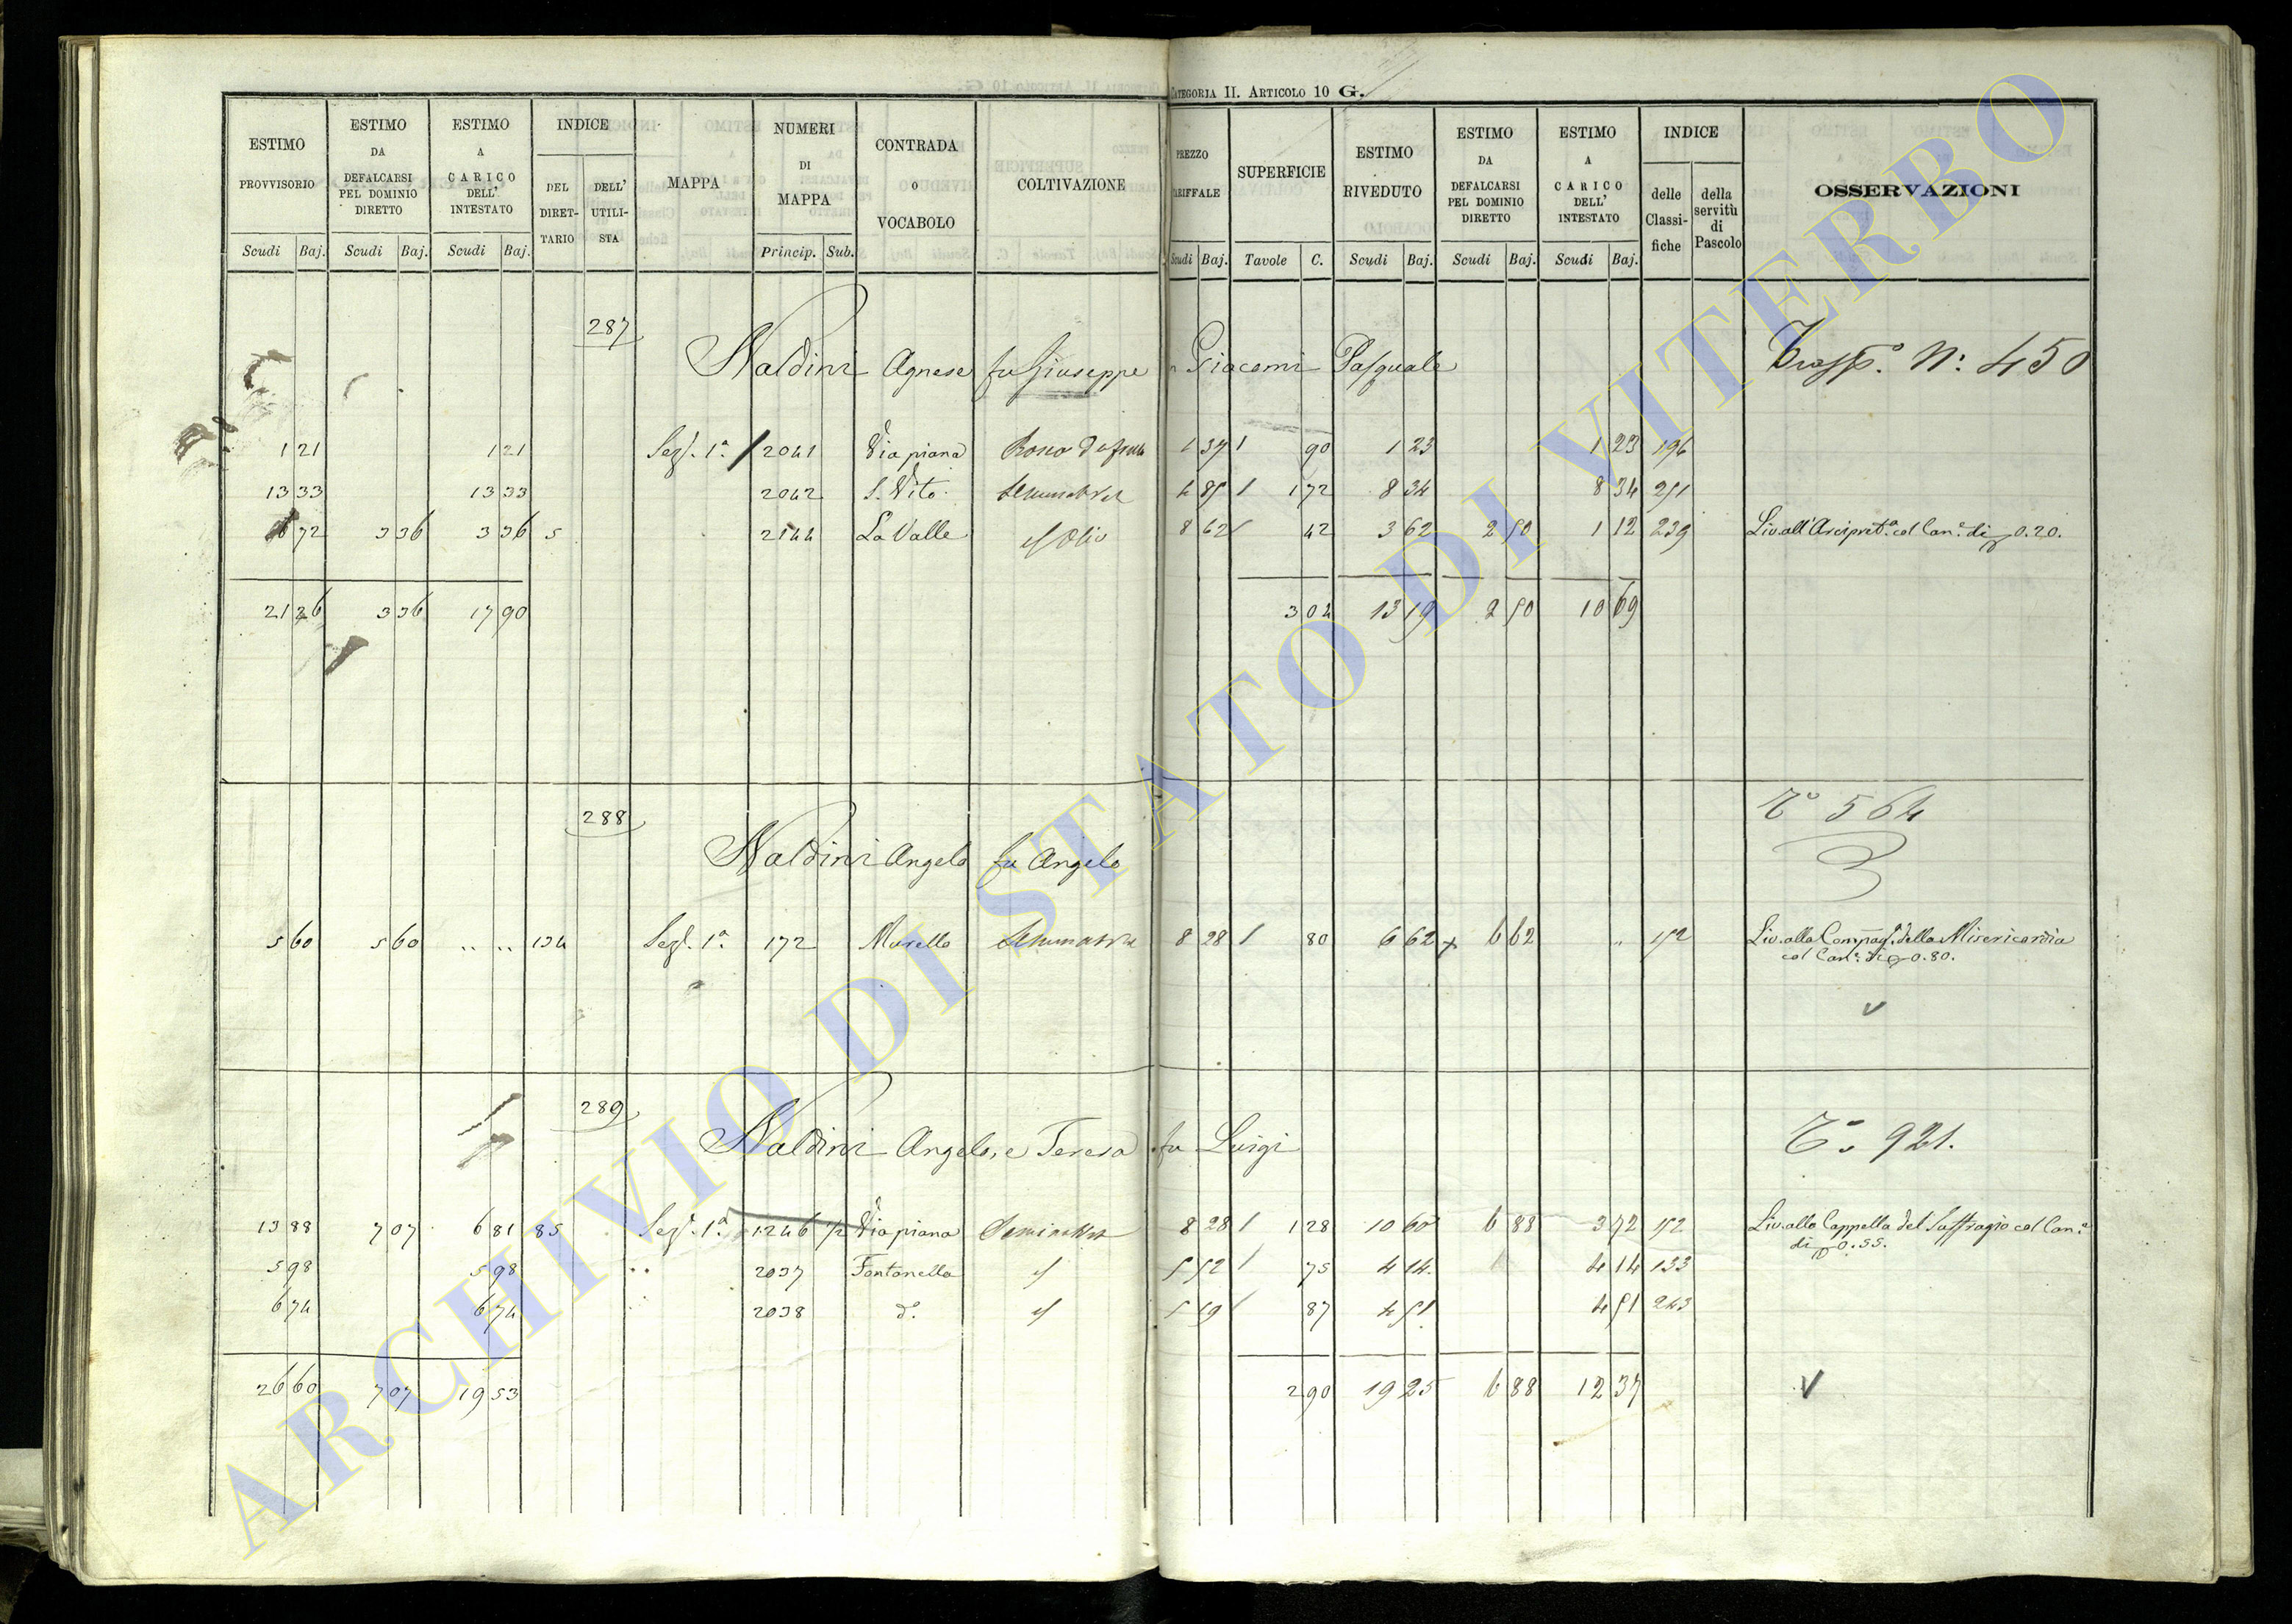 CATEGORIA II. ARTICOLO 10 G.
ESTIMO PROVVISORIO Scudi Baj.
ESTIMO DA DEFALCARSI PEL DOMINIO DIRETTO Scudi Baj.
ESTIMO A CARICO DELL' INTESTATO Scudi Baj.
INDICE DEL DIRET-TARIO DELL' UTILI-STA
MAPPA
NUMERI DI MAPPA Princip. Sub.
CONTRADA O VOCABOLO
COLTIVAZIONE
PREZZO TARIFFALE Scudi Baj.
SUPERFICIE Tavole C.
ESTIMO RIVEDUTO Scudi Baj.
ESTIMO DA DEFALCARSI PEL DOMINIO DIRETTO Scudi Baj.
ESTIMO A CARICO DELL' INTESTATO Scudi Baj.
INDICE delle Classi-fiche della servitù di Pascolo
OSSERVAZIONI
287
Naldini Agnese fu Giuseppe in Giacomi Pasquale Trasp.º N: 450
1 21 1 21 Sez. 1ª 2041 Via piana 1 37 90 1 23 1 23 196
13 33 13 33 2042 S. Vito 4 85 172 8 34 8 34 251
6 72 3 36 3 36 5 2144 La Valle Oliv 8 62 42 3 62 2 50 1 12 239 Liv. all'Arcipret.ª col Can.e di 0.20.
21 26 3 36 17 90 3 04 13 19 2 50 10 69
288
Naldini Angelo fu Angelo Tº 564
5 60 5 60 " " 134 Sez. 1ª 172 Murello Seminativo 8 28 80 6 62 6 62 " 152 Liv. alla Compag. della Misericordia
col Can.e di 0.80.
289
Naldini Angelo, e Teresa fu Luigi Tº 921.
13 88 7 07 6 81 85 Sez. 1ª 1246 1/2 Via piana Seminativo 8 28 128 10 60 6 88 3 72 152 Liv. alla Cappella del Suffragio col Can.e
di 0.55.
5 98 5 98 " 2037 Fontanella 5 52 75 4 14 4 14 133
6 74 6 74 2038 d.º 5 19 87 4 51 4 51 243
26 60 7 07 19 53 2 90 19 25 6 88 12 37
ARCHIVIO DI STATO DI VITERBO